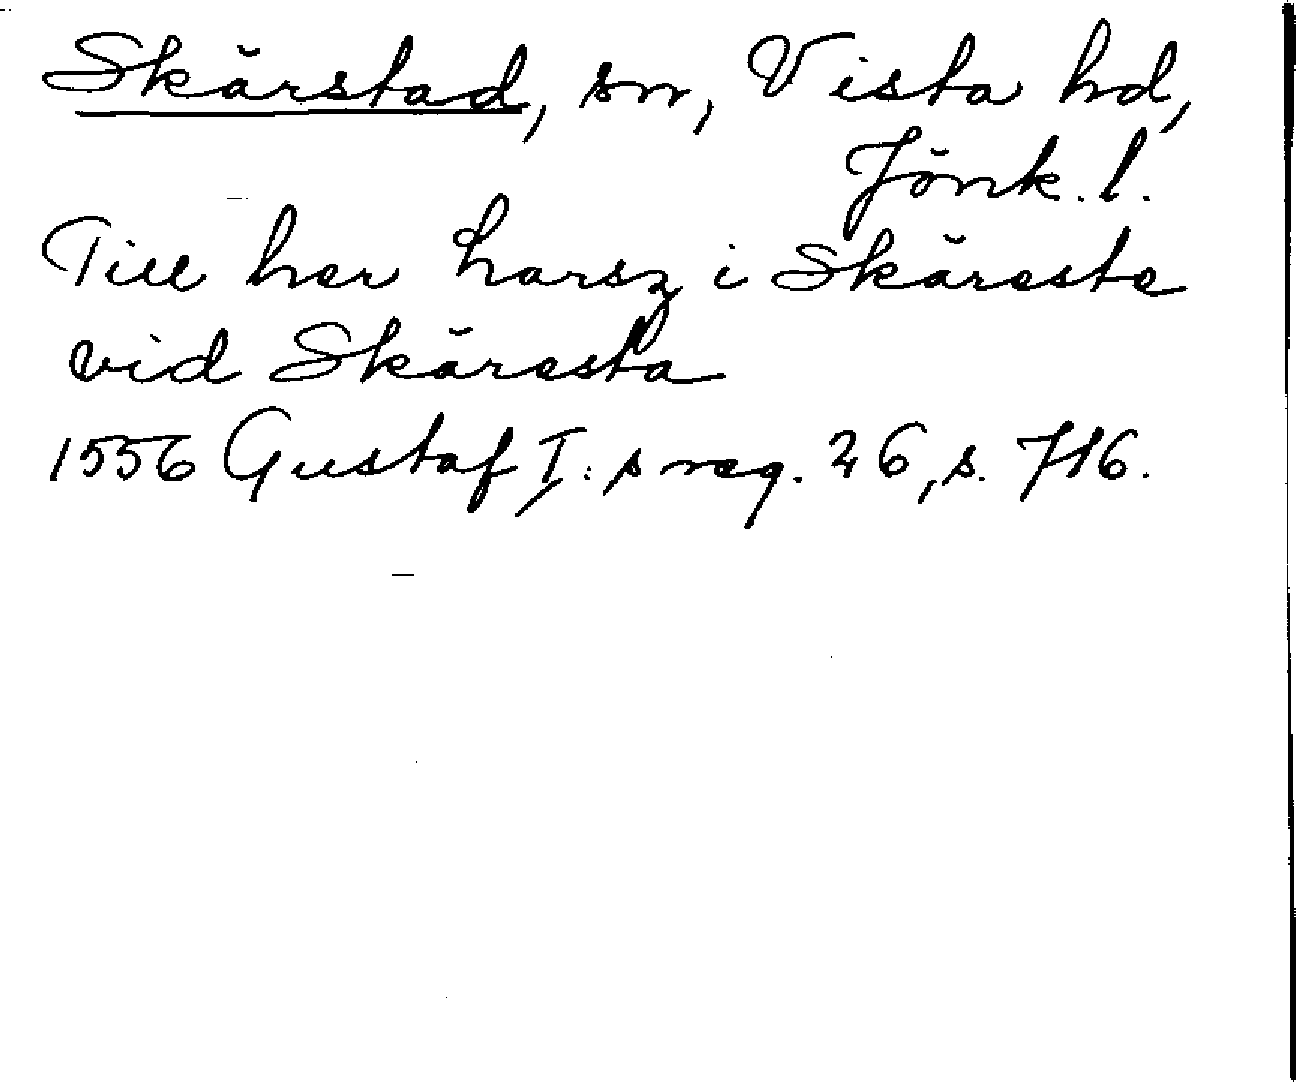 Skärstad, sn, Vista hd,
Jönk. l.
Till her harsz i Skäreste
vid Skäresta
1556 Gustaf I:s reg. 26, s. 716.